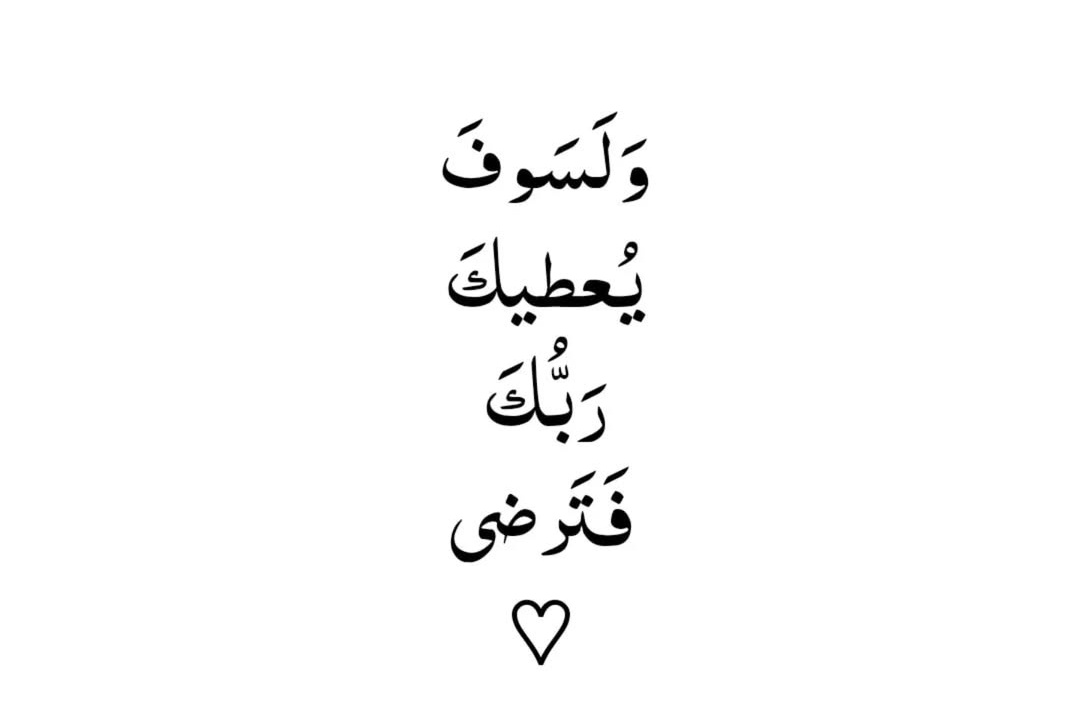 وَلَسَوفَ
يُعطيكَ
رَبُّكَ
فَتَرضى
♡